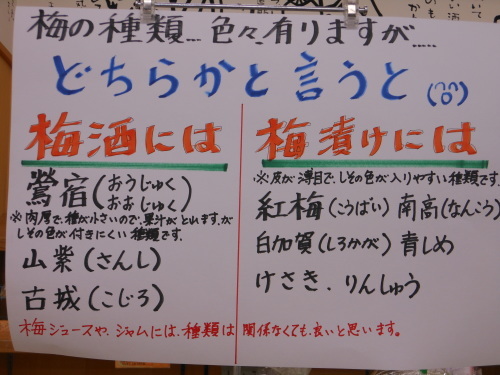 梅の種類…色々、有りますが……
どちらかと言うと
梅酒には
鶯宿(おうじゅく
おおじゅく)
※肉厚で、種が小さいので、果汁がとれますが
しその色が付きにくい種類です。
山紫(さんし)
古城(こじろ)
梅漬けには
※皮が薄目で、しその色が入りやすい種類です。
紅梅(こうばい) 南高(なんこう)
白加賀(しろかが) 青しめ
けさき、りんしゅう
梅ジュースや、ジャムには、種類は関係なくても、良いと思います。